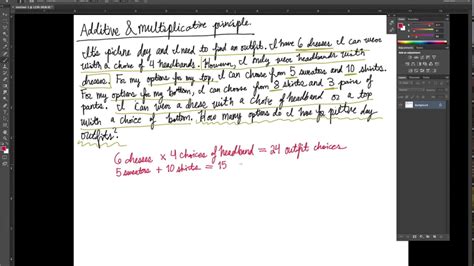 Additive & multiplicative principle.
It's picture day and I need to find an outfit. I have 6 dresses I can wear
with a choice of 4 headbands. However, I only wear headbands with
dresses. For my options for my top, I can choose from 5 sweaters and 10 shirts.
For my options for my bottom, I can choose from 8 skirts and 3 pairs of
pants. I can wear a dress with a choice of headband or a top
with a choice of bottom. How many options do I have for picture day
outfits?
6 dresses × 4 choices of headband = 24 outfit choices
5 sweaters + 10 shirts = 15